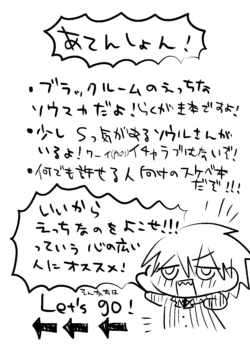 あてんしょん!
・ブラックルームのえっちな
ソウマカだよ!らくがき本ですよ!
・少しSっ気があるソウルさんが
いるよ!ワーイ イチャラブはないぞ!
・何でも許せる人向けのスケベ本
だぞ!!!
いいから
えっちなのをよこせ!!!
っていう心の広い
人にオススメ!
そんなわけは
Let's go!